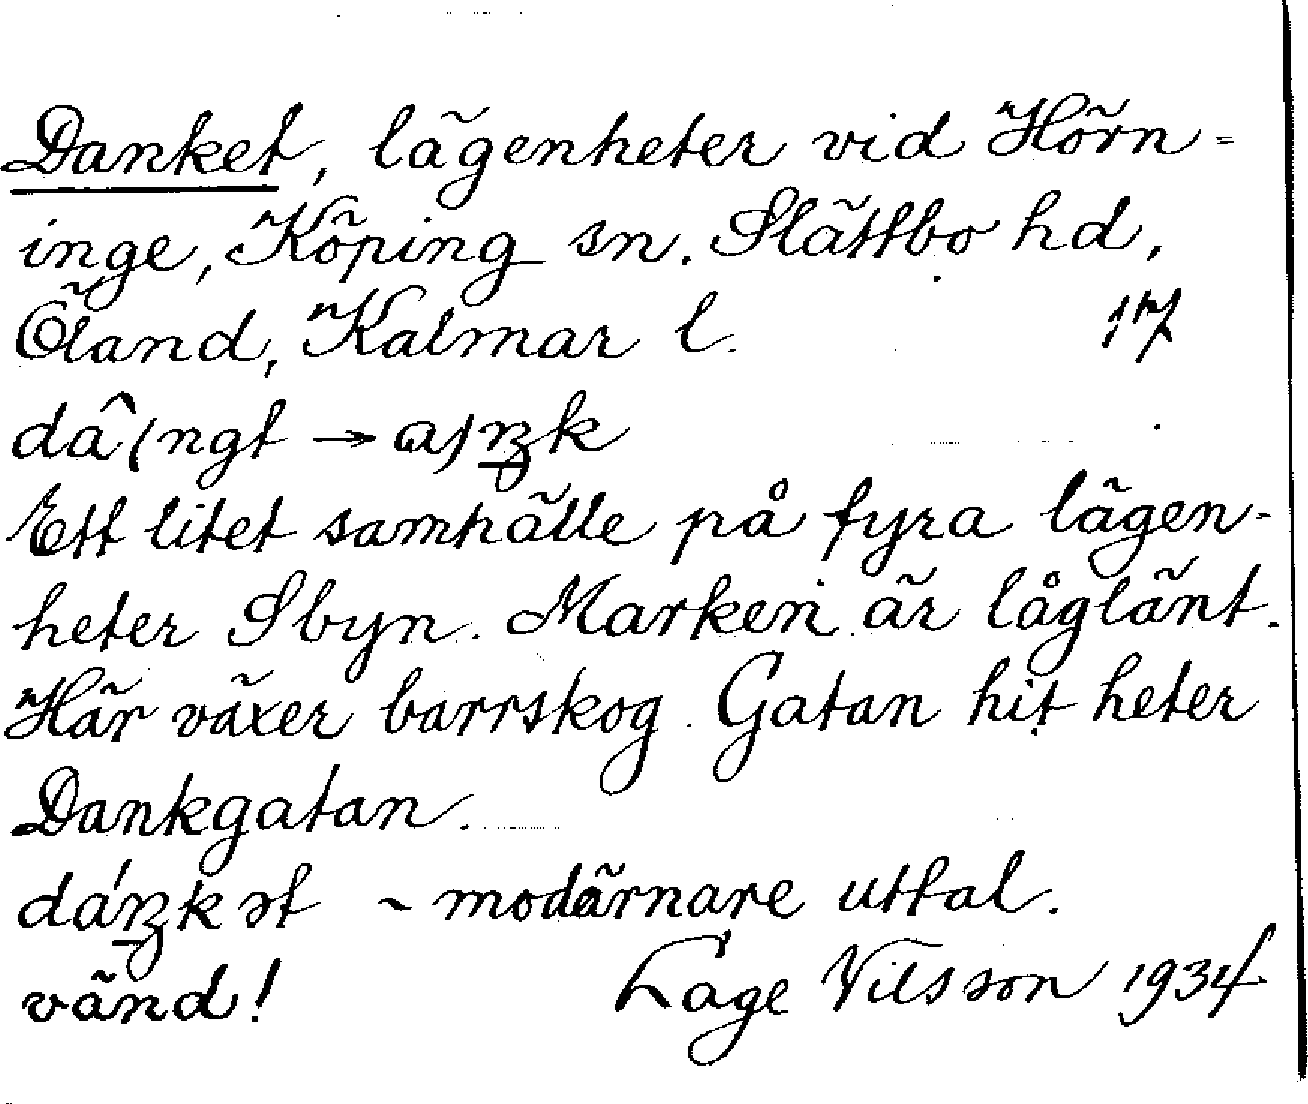 Danket, lägenheter vid Hörn-
inge, Köping sn. Slättbo hd,
Öland, Kalmar l. 17
Ett litet samhälle på fyra lägen-
heter S byn. Marken är låglänt.
Här växer barrskog. Gatan hit heter
Dankgatan.
~ modärnare uttal.
vänd! Lage Nilsson 1934